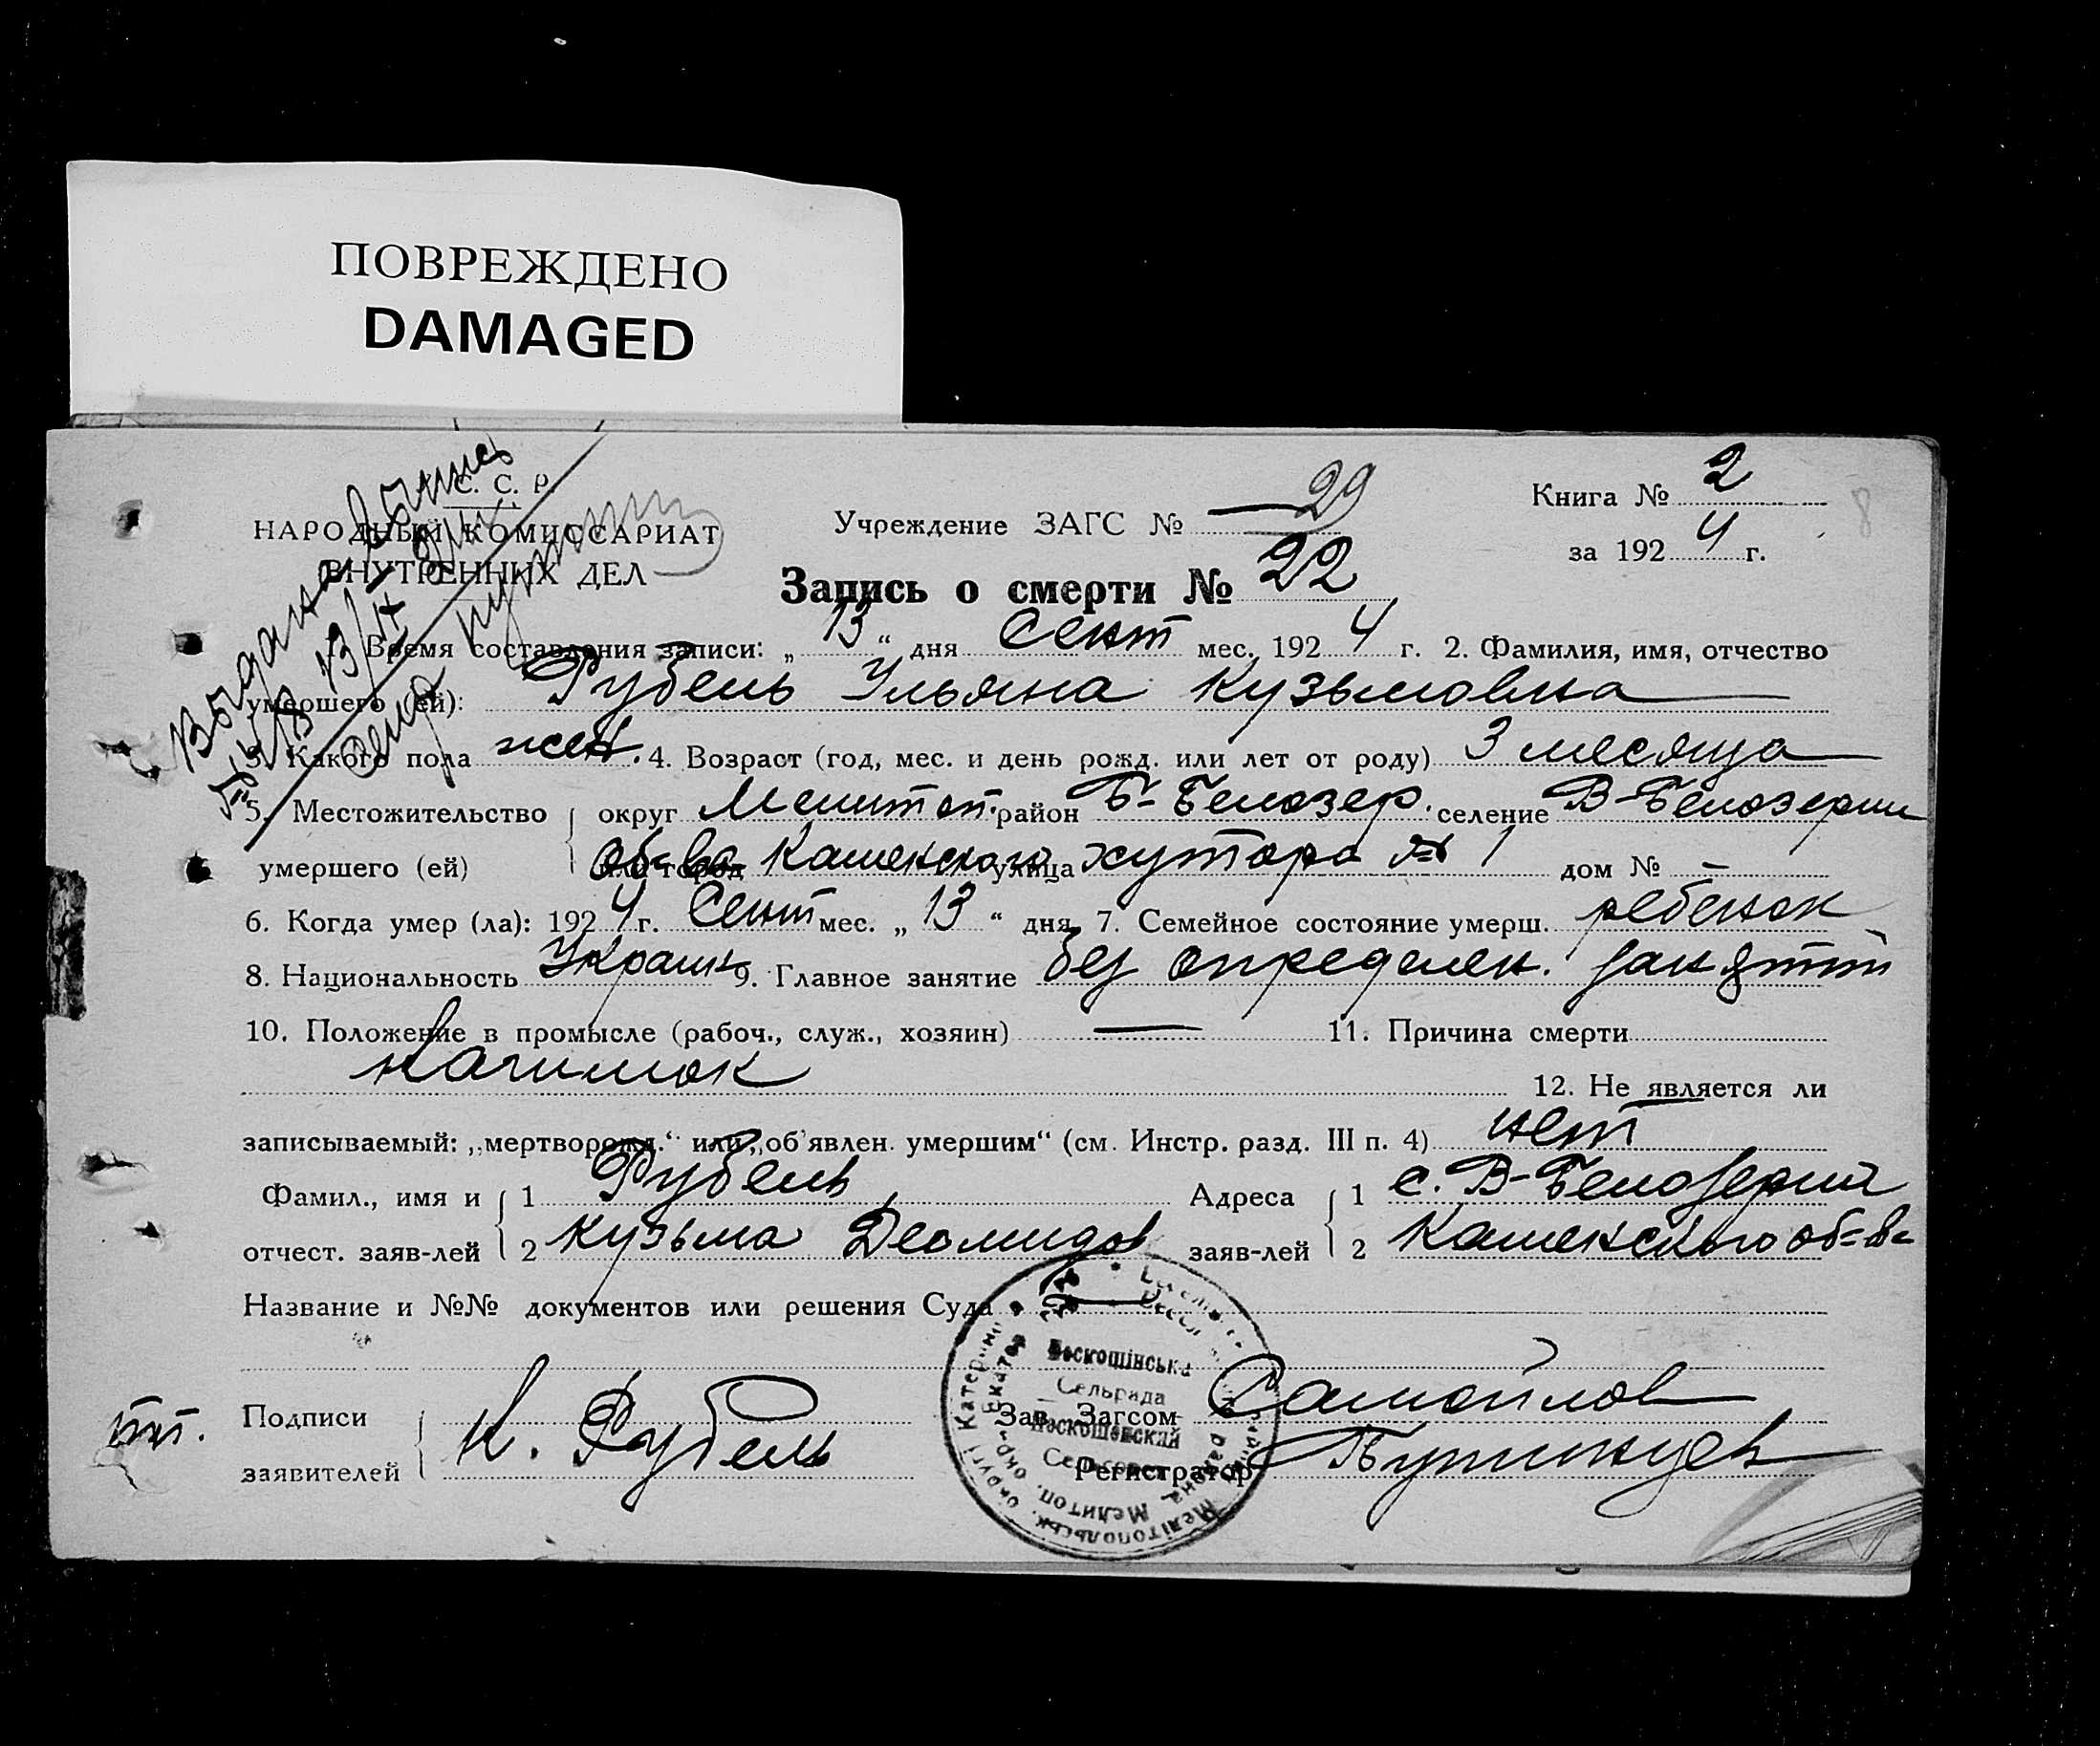 ПОВРЕЖДЕНО
DAMAGED
С. С. Р.
НАРОДНЫЙ КОМИССАРИАТ
ВНУТРЕННИХ ДЕЛ
Выдана выпись
13/IX
Учреждение ЗАГС № 29
Книга № 2
за 1924 г.
8
Запись о смерти № 22
1. Время составления записи: „13“ дня Сент мес. 1924 г. 2. Фамилия, имя, отчество
умершего (ей): Рубель Ульяна Кузьмовна
3. Какого пола жен. 4. Возраст (год, мес. и день рожд. или лет от роду) 3 месяца
5. Местожительство округ Мелитоп. район Б-Белозер. селение В-Белозерки
умершего (ей) или город об-ва Каменского улица хутора № 1 дом № –
6. Когда умер (ла): 1924 г. Сент мес. „13“ дня 7. Семейное состояние умерш. ребенок
8. Национальность Украин 9. Главное занятие без определен. занятий
10. Положение в промысле (рабоч., служ., хозяин) — 11. Причина смерти
12. Не является ли
записываемый: „мертворожд.“ или „об'явлен. умершим“ (см. Инстр. разд. III п. 4) нет
Фамил., имя и 1 Рубель Адреса 1 с. В-Белозерки
отчест. заяв-лей 2 Кузьма Деомидов заяв-лей 2 Каменского об-ва
Название и №№ документов или решения Суда —
Подписи
заявителей К. Рубель
Зав. Загсом Самойлов
Регистратор
Сельрада